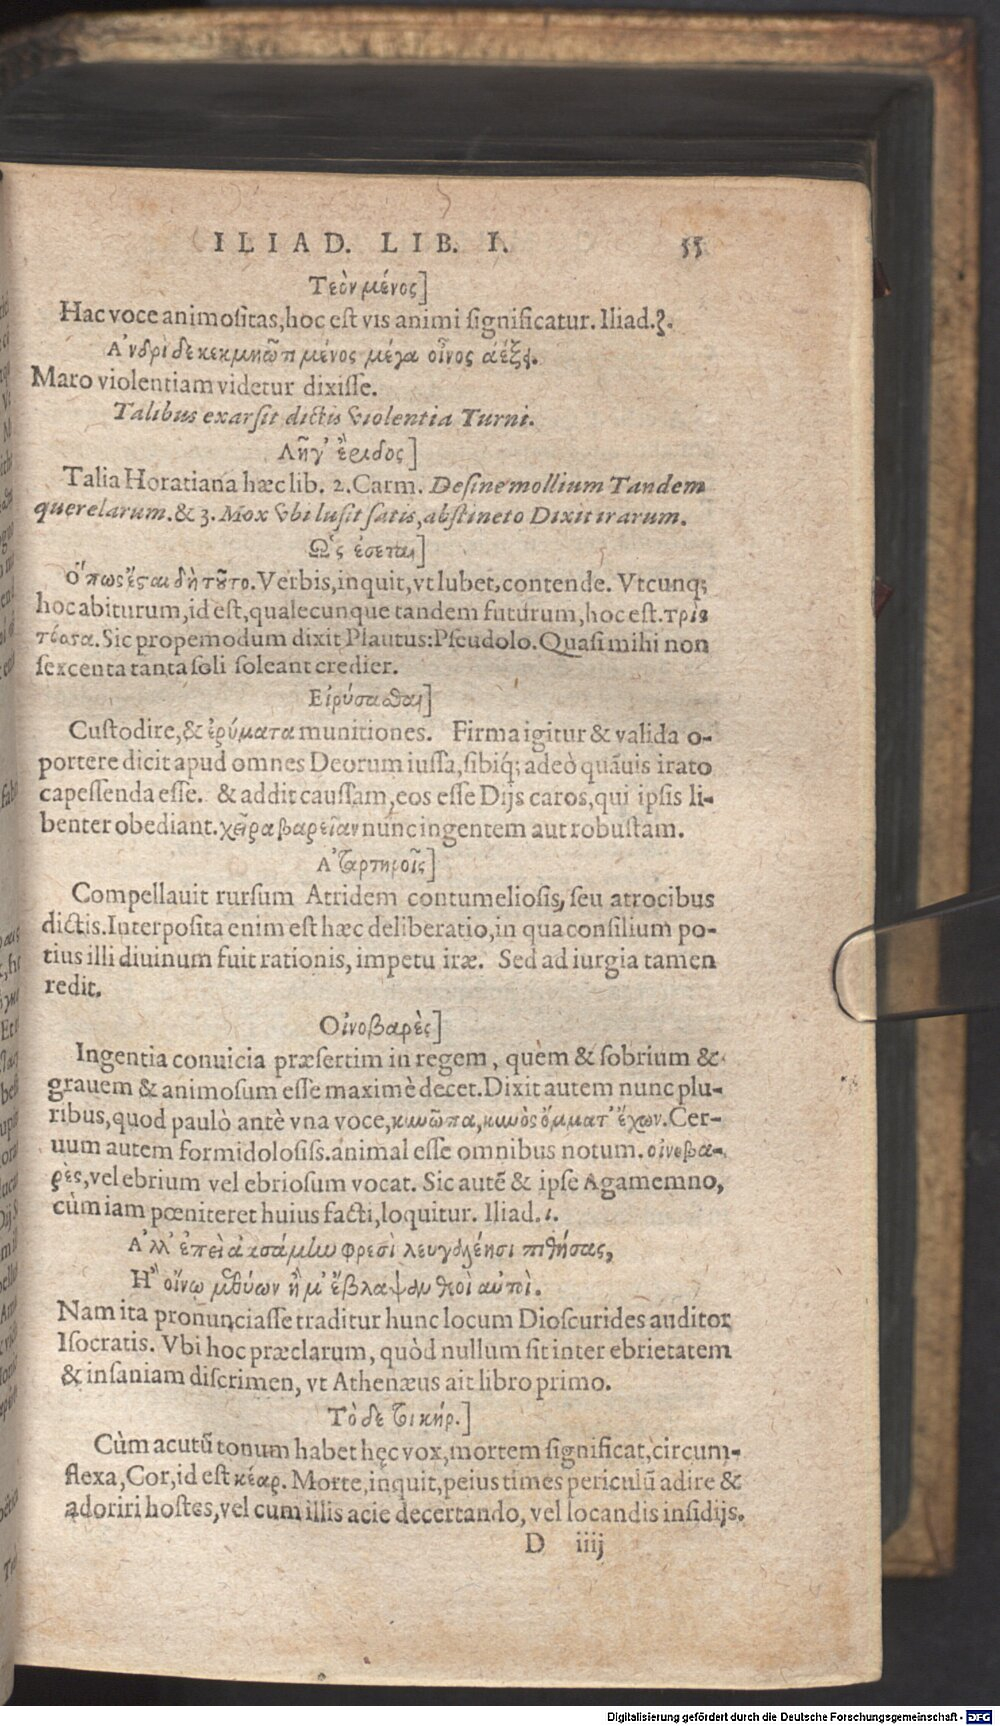 ILIAD. LIB. I. 55
Τεὸν μένος]
Hac voce animositas, hoc est vis animi significatur. Iliad. ζ.
Ἀνδρὶ δὲ κεκμηῶτι μένος μέγα οἶνος ἀέξει.
Maro violentiam videtur dixisse.
Talibus exarsit dictis violentia Turni.
Λῆγ' ἔριδος]
Talia Horatiana hæc lib. 2. Carm. Desine mollium Tandem
querelarum. & 3. Mox vbi lusit satis, abstineto Dixit irarum.
Ὡς ἔσεται]
Ὅπως ἔσται δὴ τοῦτο. Verbis, inquit, vt lubet, contende. Vtcunq;
hoc abiturum, id est, qualecunque tandem futurum, hoc est. τρὶς
τόσσα. Sic propemodum dixit Plautus: Pseudolo. Quasi mihi non
sexcenta tanta soli soleant credier.
Εἰρύσασθαι]
Custodire, & ἐρύματα munitiones. Firma igitur & valida o-
portere dicit apud omnes Deorum iussa, sibiq; adeò quãuis irato
capessenda esse. & addit caussam, eos esse Dijs caros, qui ipsis li-
benter obediant. χεῖρα βαρεῖαν nunc ingentem aut robustam.
Ἀταρτηροῖς]
Compellauit rursum Atridem contumeliosis, seu atrocibus
dictis. Interposita enim est hæc deliberatio, in qua consilium po-
tius illi diuinum fuit rationis, impetu iræ. Sed ad iurgia tamen
redit.
Οἰνοβαρὲς]
Ingentia conuicia præsertim in regem, quem & sobrium &
grauem & animosum esse maximè decet. Dixit autem nunc plu-
ribus, quod paulò antè vna voce, κυνῶπα, κυνὸς ὄμματ' ἔχων. Cer-
uum autem formidolosiss. animal esse omnibus notum. οἰνοβα-
ρὲς, vel ebrium vel ebriosum vocat. Sic autẽ & ipse Agamemno,
cùm iam pœniteret huius facti, loquitur. Iliad. ι.
Ἀλλ' ἐπεὶ ἀασάμην φρεσὶ λευγαλέῃσι πιθήσας,
Ἢ οἴνῳ μεθύων ἤ μ' ἔβλαψαν θεοὶ αὐτοὶ.
Nam ita pronunciasse traditur hunc locum Dioscurides auditor
Isocratis. Vbi hoc præclarum, quòd nullum sit inter ebrietatem
& insaniam discrimen, vt Athenæus ait libro primo.
Τὸ δέ τοι κήρ.]
Cùm acutũ tonum habet hęc vox, mortem significat, circum-
flexa, Cor, id est κέαρ. Morte, inquit, peius times periculũ adire &
adoriri hostes, vel cum illis acie decertando, vel locandis insidijs.
D iiij
Digitalisierung gefördert durch die Deutsche Forschungsgemeinschaft - DFG